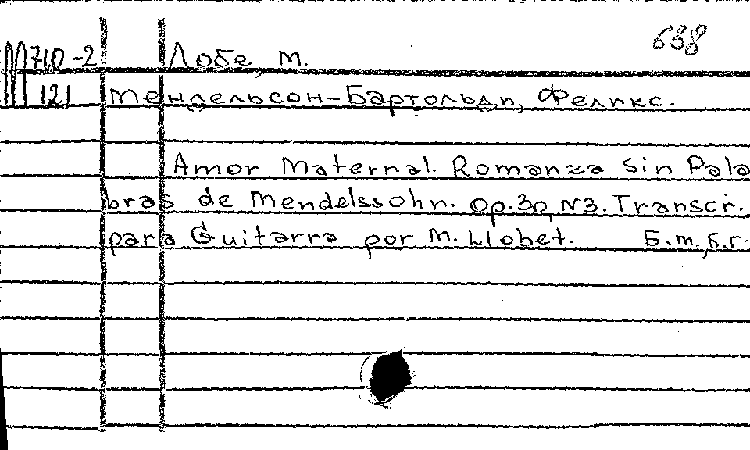 638
М710-2 Лобе, М.
121 Мендельсон-Бартольди, Феликс.
Amor Maternal. Romanza sin Pala
bras de Mendelssohn. Op.30, №3. Transcr.
para Guitarra por M. Llobet. Б.м., б.г.